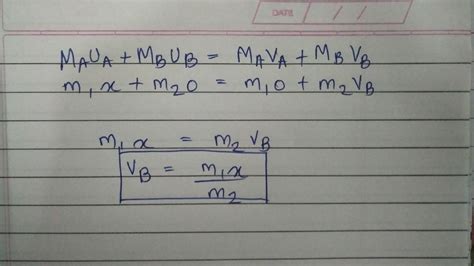 DATE
M_A U_A + M_B U_B = M_A V_A + M_B V_B
m_1 x + m_2 0 = m_1 0 + m_2 V_B
m_1 x = m_2 V_B
V_B = m_1 x / m_2